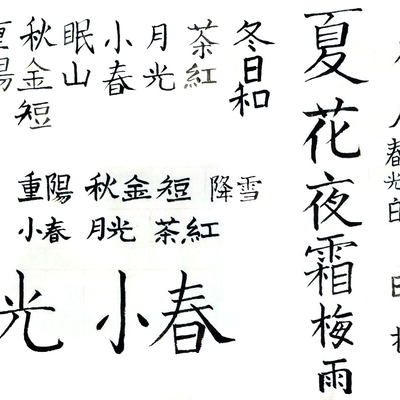 夏花夜霜梅雨
春光
冬日和
茶紅
月光
小春
眠山
秋金短
重陽
重陽 秋金短 降雪
小春 月光 茶紅
光 小春